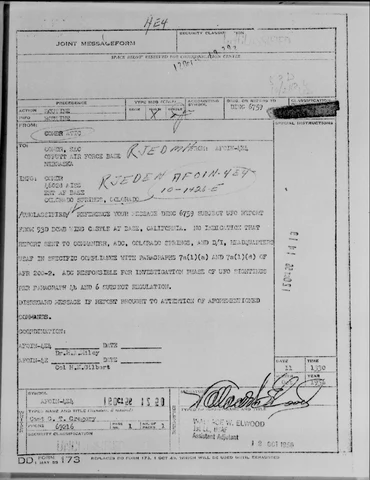 AE4
JOINT MESSAGEFORM
SECURITY CLASSIFICATION
SPACE ABOVE RESERVED FOR COMMUNICATION CENTER
PRECEDENCE
TYPE MSG (Check)
ACCOUNTING SYMBOL
ORIG. OR REFERS TO
CLASSIFICATION
ACTION ROUTINE
INFO ROUTINE
X
X
DEWG 6759
FROM:
SPECIAL INSTRUCTIONS
COMDR ATIC
TO:
COMDR, SAC
OFFUTT AIR FORCE BASE
NEBRASKA
AFOIN-4E4
INFO: COMDR
4602D AISS
ENT AF BASE
COLORADO SPRINGS, COLORADO
RJEDEN AFOIN-4E4
10-1426-E
/UNCLASSIFIED/ REFERENCE YOUR MESSAGE DEWG 6759 SUBJECT UFO REPORT
FORM 93D BOMB WING CASTLE AF BASE, CALIFORNIA. NO INDICATION THAT
REPORT SENT TO COMMANDER, ADC, COLORADO SPRINGS, AND D/I, HEADQUARTERS
USAF IN SPECIFIC COMPLIANCE WITH PARAGRAPHS 7a(1)(a) AND 7a(1)(d) OF
AFR 200-2. ADC RESPONSIBLE FOR INVESTIGATION PHASE OF UFO SIGHTINGS
PER PARAGRAPH 4A AND 6 SUBJECT REGULATION.
DISREGARD MESSAGE IF REPORT BROUGHT TO ATTENTION OF AFOREMENTIONED
COMMANDS.
COORDINATION:
AFOIN-4E4 DATE
AFOIN-4E DATE
Col H.K.Gilbert
11
1330
OCT
1956
SYMBOL
AFOIN-4E4
TYPED NAME AND TITLE (Signature, if required)
Capt G. T. Gregory
PHONE 69216
PAGE NR. 1
NR. OF PAGES 1
SECURITY CLASSIFICATION
WALLACE W. ELWOOD
Assistant Adjutant
DD FORM 173
REPLACES DD FORM 173, 1 OCT 49, WHICH WILL BE USED UNTIL EXHAUSTED